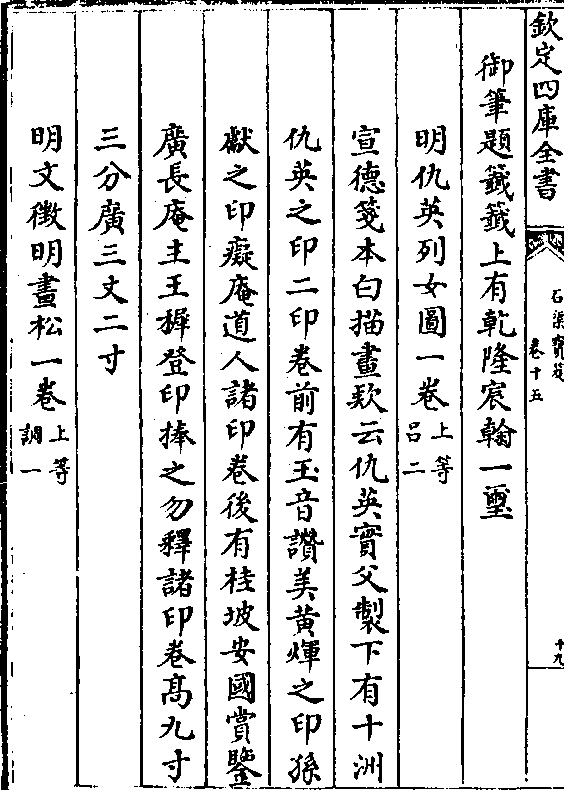 欽定四庫全書
石渠寶笈
卷十五
十九
御筆題籤籤上有乾隆宸翰一璽
明仇英列女圖一卷上等
呂二
宣德箋本白描畫款云仇英實父製下有十洲
仇英之印二印卷前有玉音讚美黄煇之印孫
獻之印癡庵道人諸印卷後有桂坡安國賞鑒
廣長庵主王穉登印捧之勿釋諸印卷髙九寸
三分廣三丈二寸
明文徵明畫松一卷上等
調一